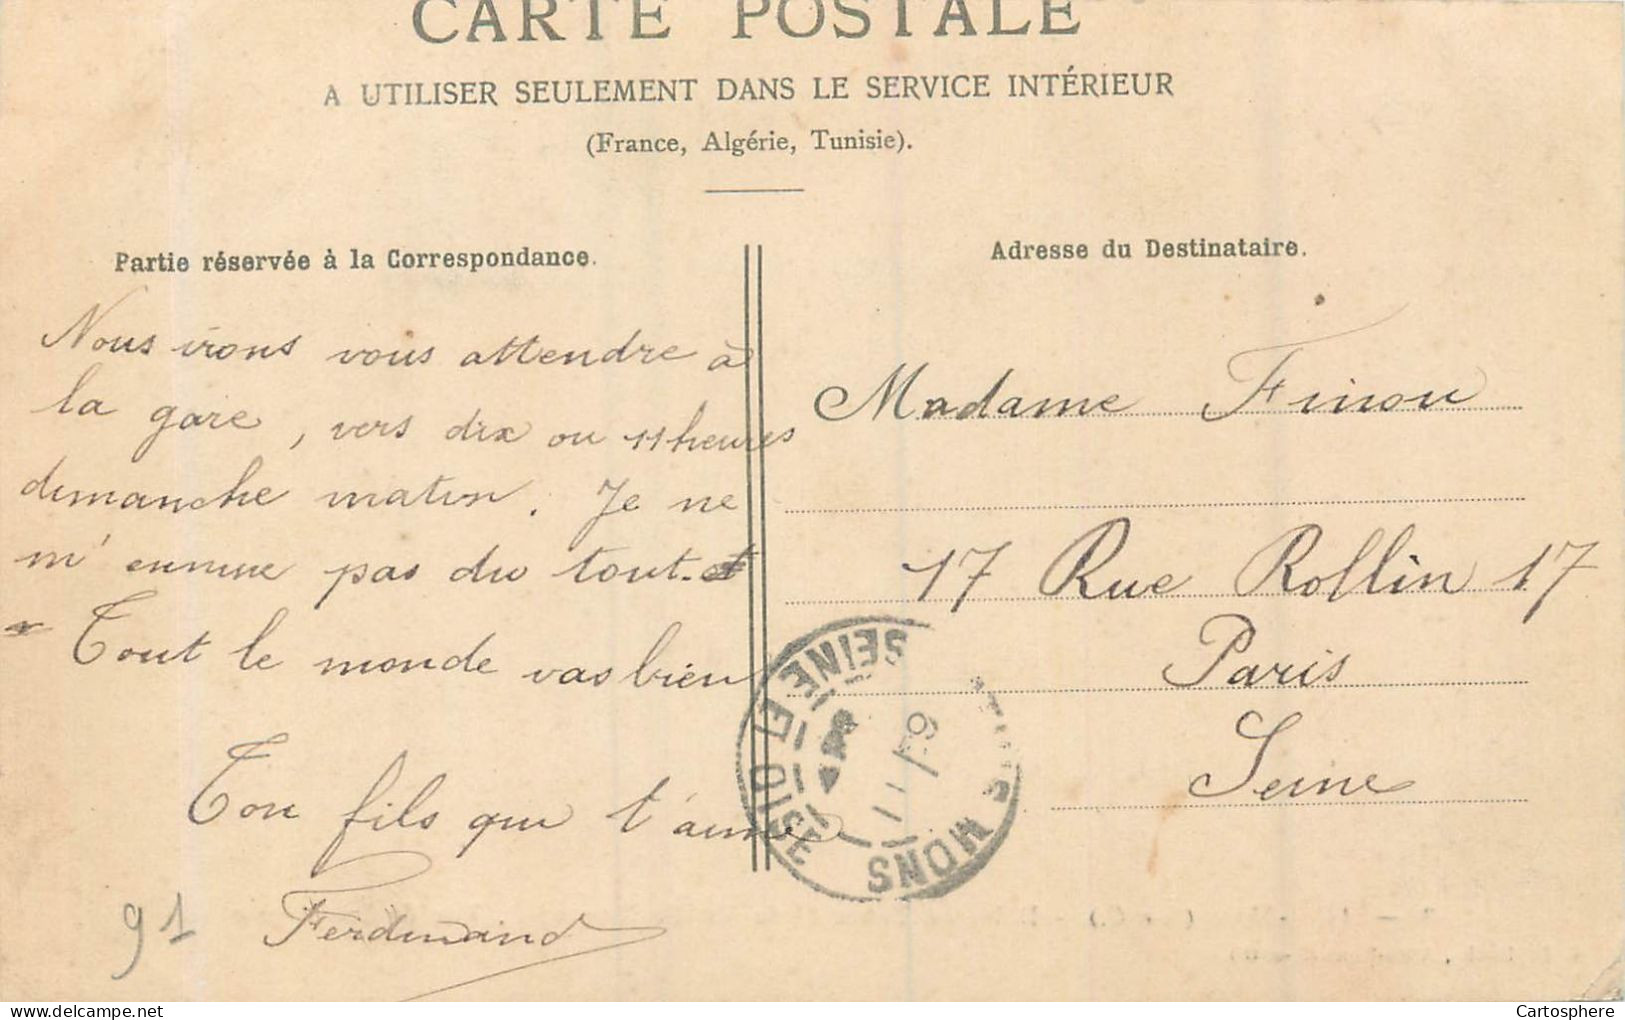 CARTE POSTALE
A UTILISER SEULEMENT DANS LE SERVICE INTÉRIEUR
(France, Algérie, Tunisie).
Partie réservée à la Correspondance.
Nous irons vous attendre à
la gare, vers dix ou 11 heures
dimanche matin. Je ne
m'ennuie pas du tout.
Tout le monde vas bien
Ton fils qui t'aime
Ferdinand
91
Adresse du Destinataire.
Madame Finou
17 Rue Rollin 17
Paris
Seine
MONS
SEINE ET OISE
Cartosphere